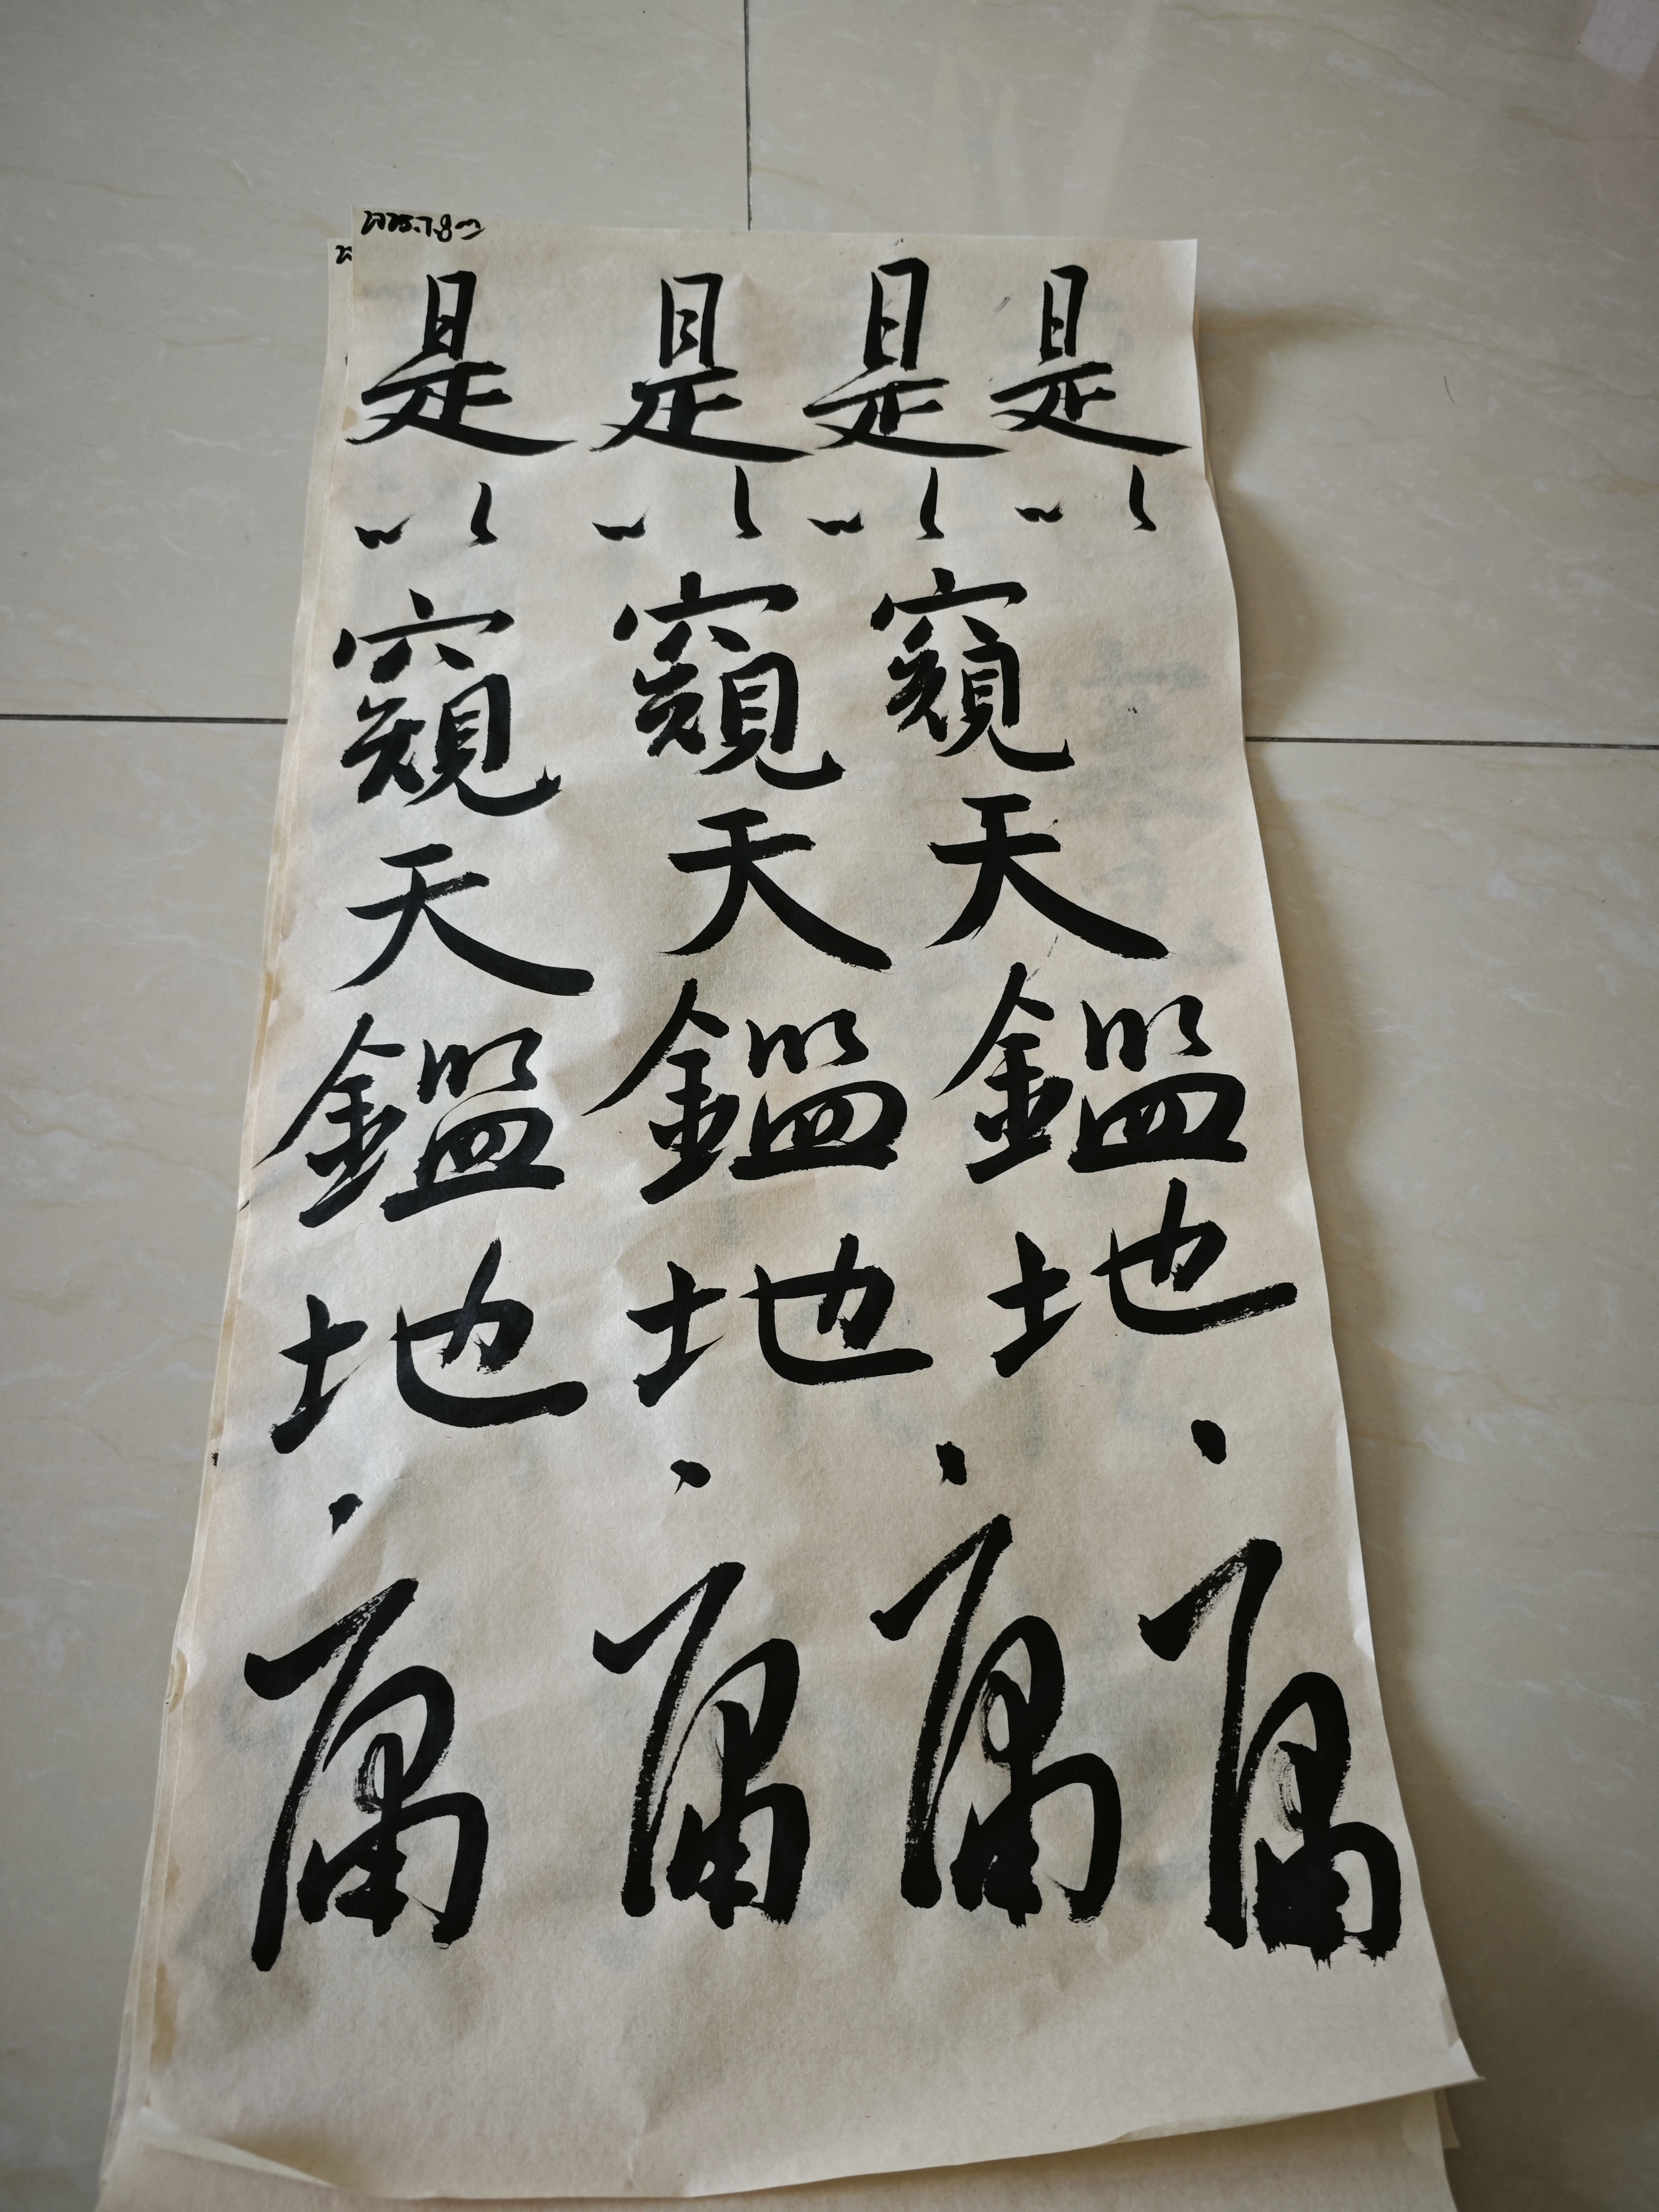 2025.7.8
是是是是
以以以以
窺窺窺
天天天
鑑鑑鑑
地地地
庸庸庸庸